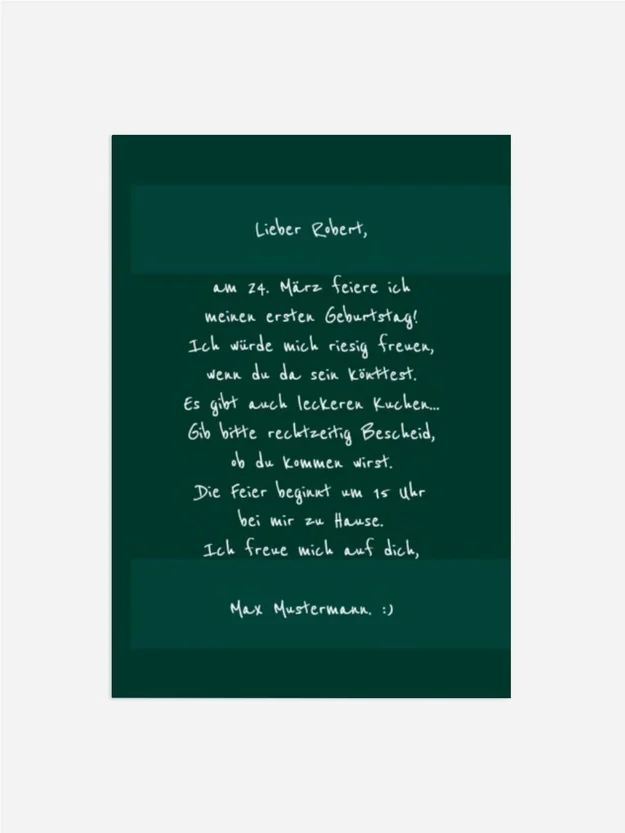 Lieber Robert,
am 24. März feiere ich
meinen ersten Geburtstag!
Ich würde mich riesig freuen,
wenn du da sein könntest.
Es gibt auch leckeren Kuchen...
Gib bitte rechtzeitig Bescheid,
ob du kommen wirst.
Die Feier beginnt um 15 Uhr
bei mir zu Hause.
Ich freue mich auf dich,
Max Mustermann. :)